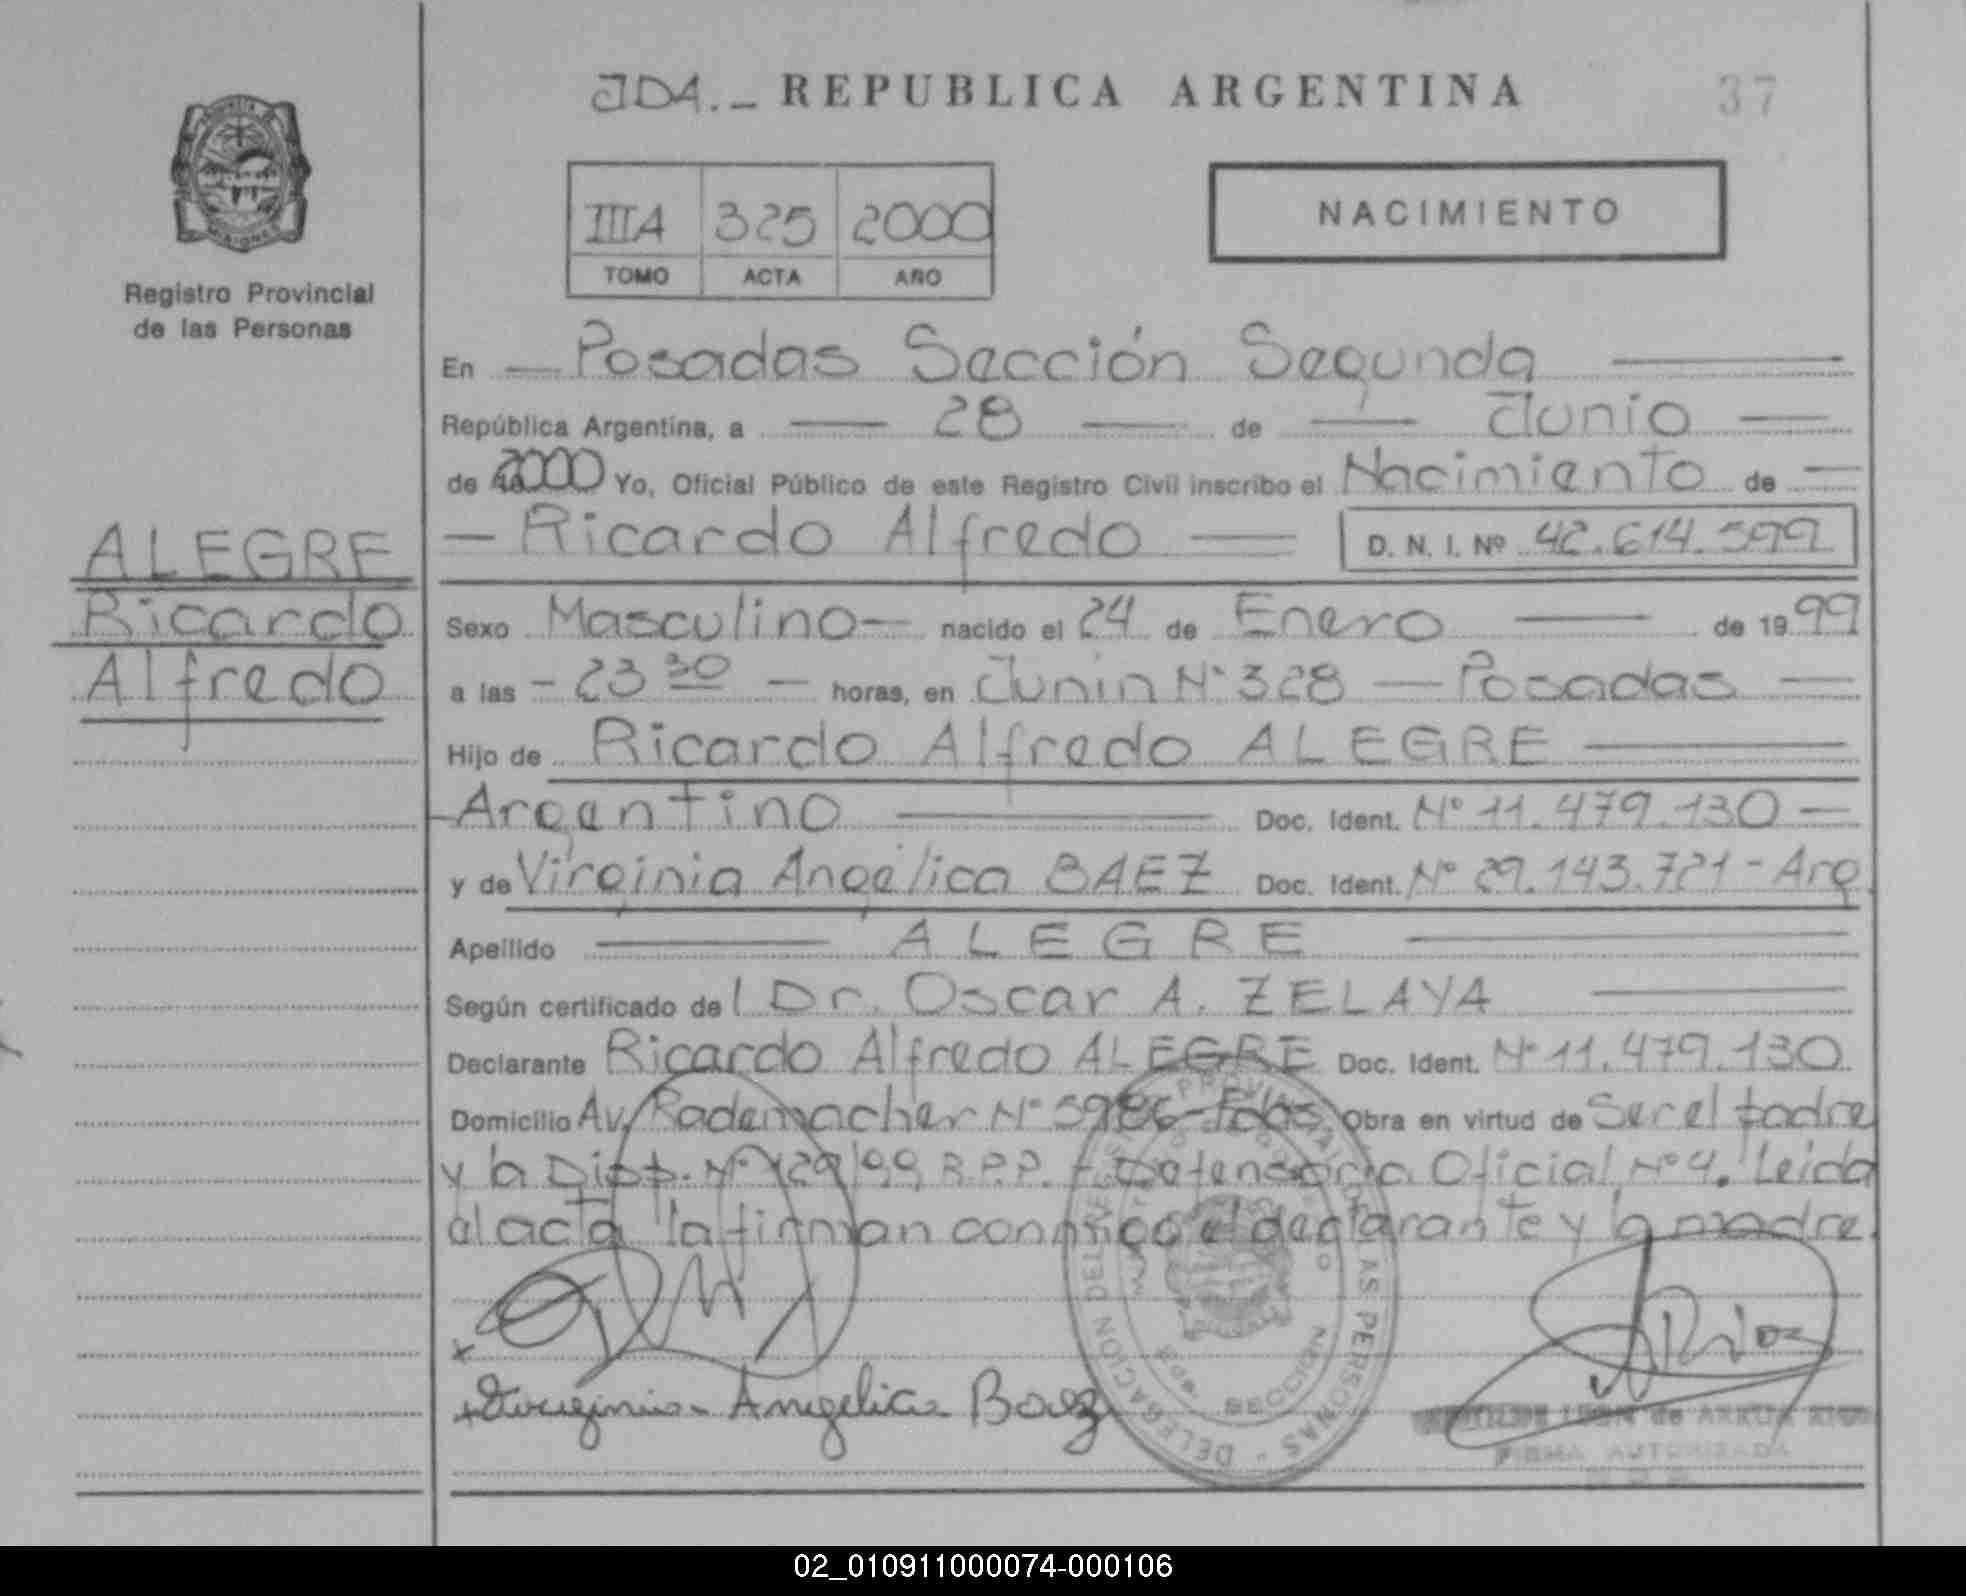 2DA.- REPUBLICA ARGENTINA 37
IIIA 325 2000
TOMO ACTA AÑO
NACIMIENTO
Registro Provincial
de las Personas
ALEGRE
Ricardo
Alfredo
En — Posadas Sección Segunda —
República Argentina, a — 28 — de — Junio —
de 2000 Yo, Oficial Público de este Registro Civil inscribo el Nacimiento de —
— Ricardo Alfredo — D. N. I. Nº 42.614.599
Sexo Masculino — nacido el 24 de Enero — de 1999
a las - 23 30 — horas, en Junin Nº 328 — Posadas —
Hijo de Ricardo Alfredo ALEGRE —
- Argentino — Doc. Ident. Nº 11.479.130 —
y de Virginia Angélica BAEZ Doc. Ident. Nº 29.143.721 - Arg.
Apellido — ALEGRE —
Según certificado de l Dr. Oscar A. ZELAYA —
Declarante Ricardo Alfredo ALEGRE Doc. Ident. Nº 11.479.130
Domicilio Av. Rademacher Nº 5986 - Pdas. Obra en virtud de Ser el padre
y la Disp. Nº 129/99 R.P.P. - Defensoría Oficial Nº 4. Leida
el acta la firman conmigo el declarante y la madre.
+
+ Virginia Angelica Baez
REGISTRO PROVINCIAL DE LAS PERSONAS - DELEGACION DEL
SECCION
FIRMA AUTORIZADA
02_010911000074-000106